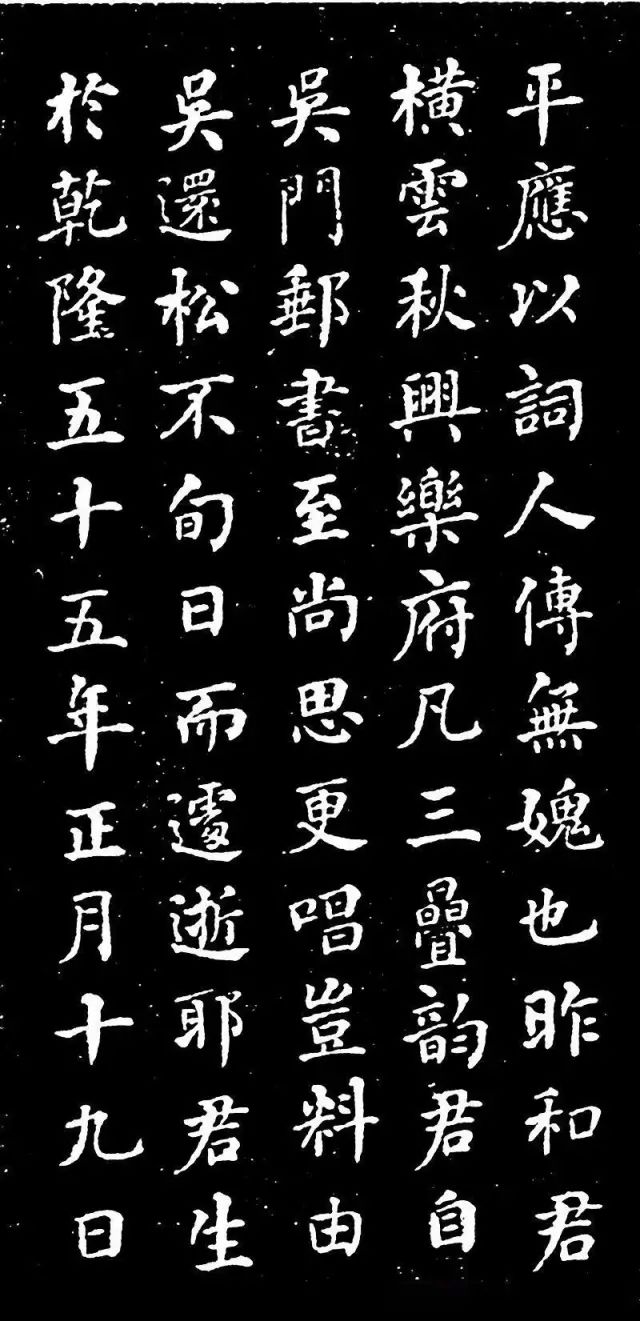 平應以詞人傳無媿也昨和君
橫雲秋興樂府凡三疊韵君自
吳門郵書至尚思更唱豈料由
吳還松不旬日而遽逝耶君生
於乾隆五十五年正月十九日